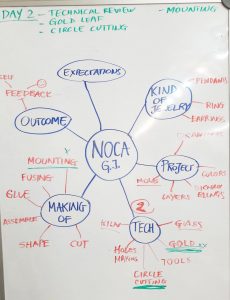 DAY 2 - TECHNICAL REVIEW - MOUNTING
- GOLD LEAF
- CIRCLE CUTTING
EXPECTATIONS
KIND
OF
JEWELRY
PENDANTS
RING
EARRINGS
SELF
FEEDBACK
OUTCOME
NOCA
G.I.
PROJECT
COLORS
LAYERS
MOUNTING
FUSING
GLUE
ASSEMBLE
SHAPE
CUT
MAKING
OF
2
TECH
GLASS
GOLD
TOOLS
CIRCLE
CUTTING
HOLES
MAKING
KILN